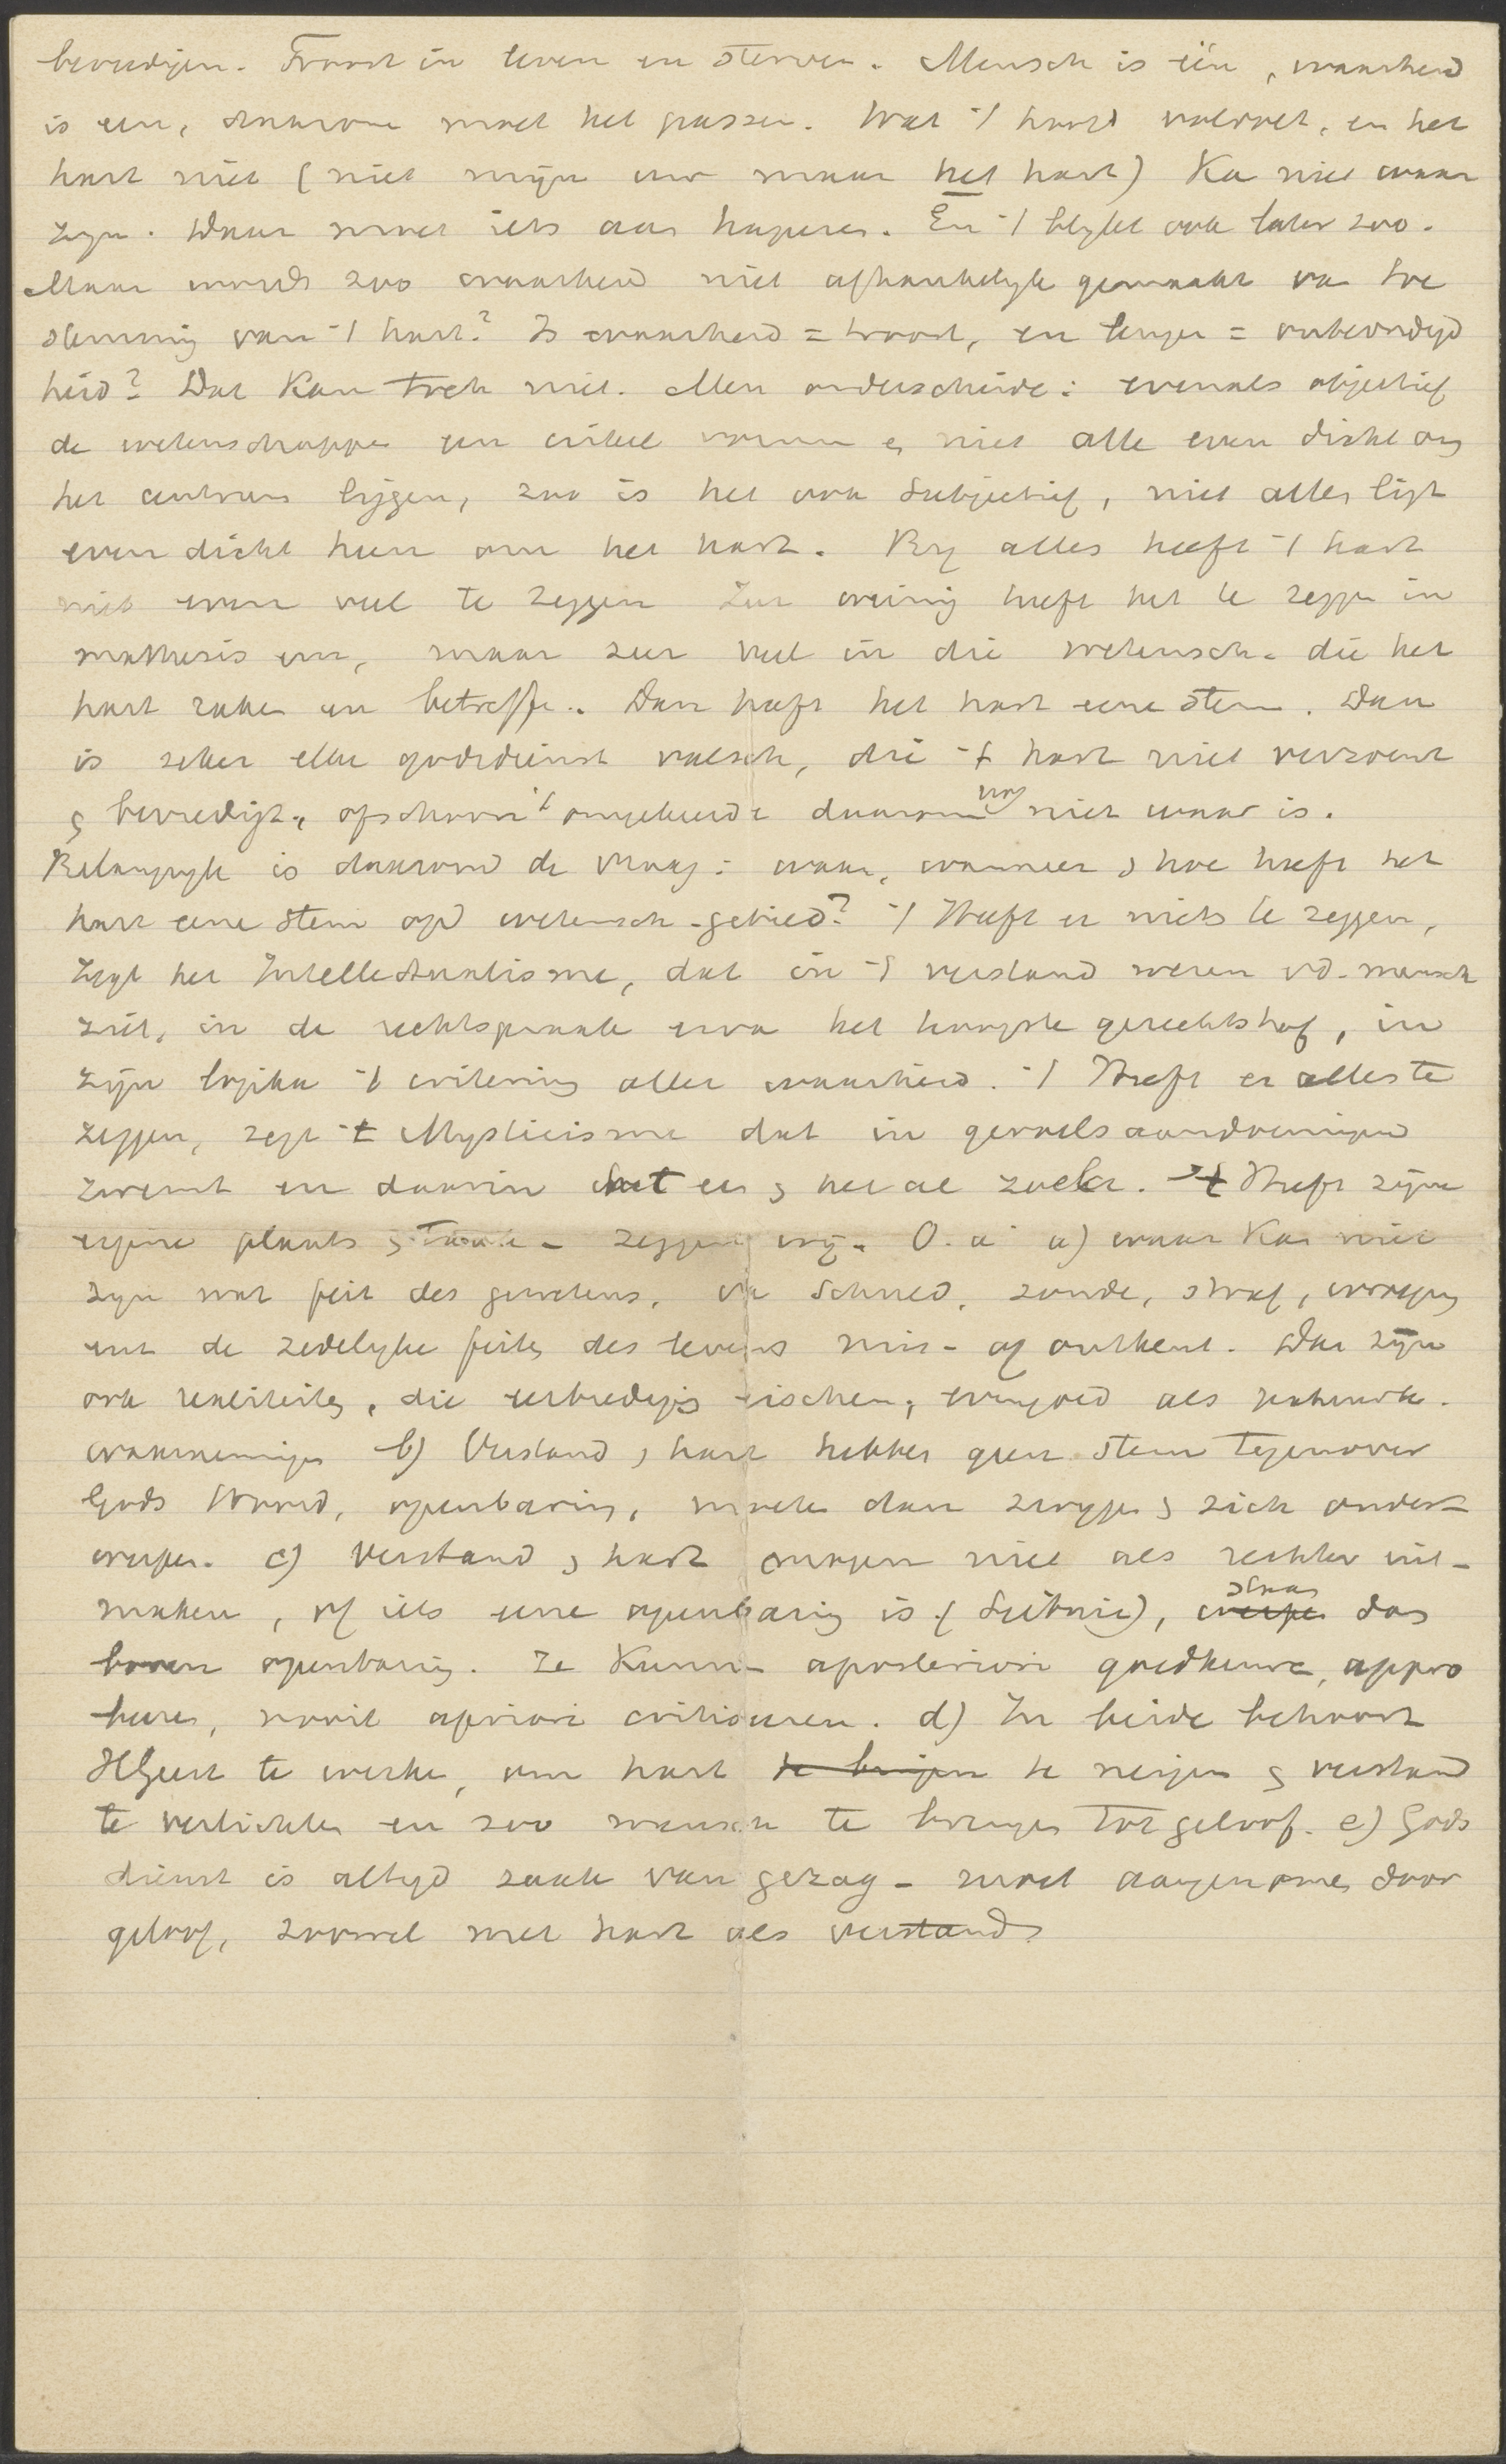 bevredigen. Troost in leven en sterven. Mensch is één, waarheid
is een, daarom moet het passen. Wat 't hoofd voldoet, en het
hart niet (niet mijn enz maar het hart) Ka niet waar
zyn. Daar moet iets aan haperen. En 't blykt ook later zoo.
Maar wordt zoo waarheid niet afhankelyk gemaakt va toe
stemming van 't hart? Is waarheid = troost, en leugen = onbevredigd
heid? Dat Kan toch niet. Men onderscheide: evenals objectief
de wetenschappe een cirkel vormen en niet alle even dicht om
het centrum liggen, zoo is het ook subjectief, niet alles ligt
even dicht heen om het hart. By alles heeft 't hart
niet even veel te zeggen Zeer weinig heeft het te zegge in
mathesis enz, maar zeer veel in die wetensch. die het
hart raken en betreffe. Dan heeft het hart eene stem. Dan
is zeker elke godsdienst valsch, die 't hart niet verzoent
en bevredigt, ofschoon 't omgekeerde daarom nog niet waar is.
Belangryk is daarom de vraag: waar, wanneer en hoe heeft het
hart eene stem op wetensch-gebied? 't Heeft er niets te zeggen,
zegt het Intellectualisme, dat in 't verstand wezen vd mensch
ziet, in de rechtspraak erva het hoogste gerechtshof, in
zijn logika 't criterium aller waarheid. 't Heeft er alles te
zeggen, zegt 't Mysticisme dat in gevoelsaandoeningen
zwemt en daarin het een en het al zoekt. 't Heeft zijne
eigene plaats en taak - zeggen wij. O. a a) waar Kan niet
zyn wat feit des gewetens, va schuld, zonde, straf, wroeging
enz de zedelyke feiten des levens mis- of ontkent. Dat zijn
ook realiteiten, die eerbiediging eischen, evengoed als natuurk.
waarnemingen b) Verstand en hart hebben geen stem tegenover
Gods Woord, openbaring, moeten dan zwygen en zich onder-
werpen. c) Verstand en hart mogen niet als rechter uit-
maken, of iets eene openbaring is (Leibniz), staan dan
boven openbaring. Ze Kunnen aposteriori goedkeuren, appro
beren, nooit apriori critiseeren. d) In beide behoort
HGeest te werke, om hart te neigen en verstand
te verlichten en zoo mensch te brengen tot geloof. e) Gods
dienst is altyd zaak van gezag - moet aangenomen door
geloof, zoowel met hart als verstand.